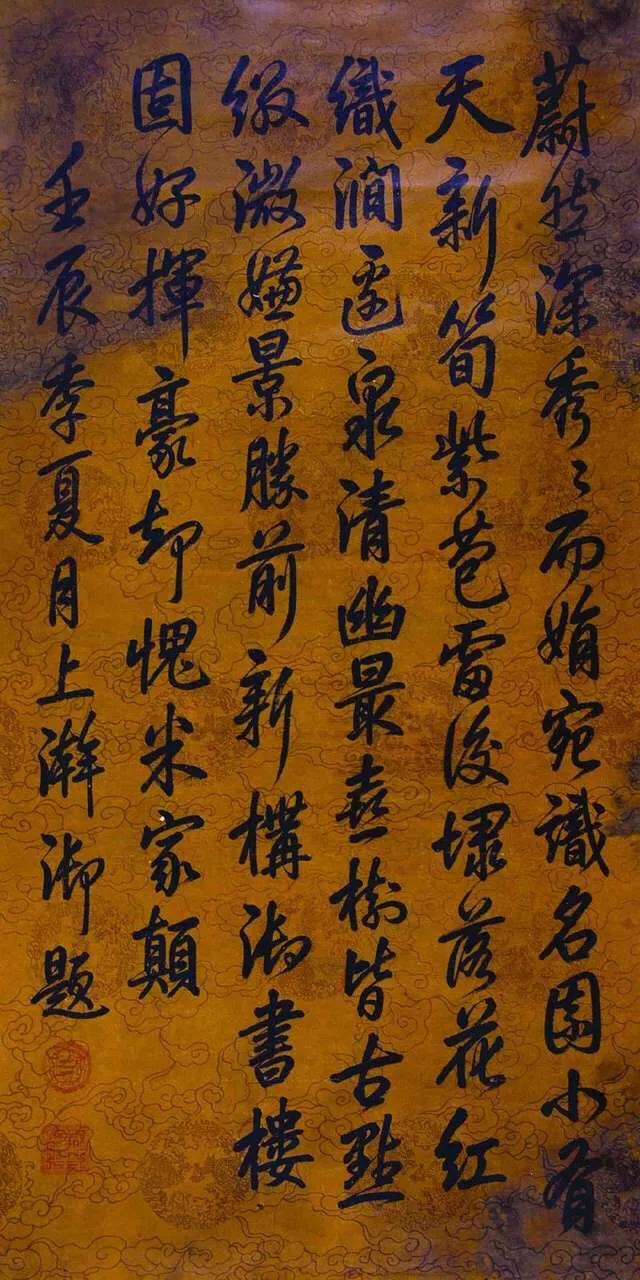 蔚然深秀秀而娟宛識名園小有
天新筍紫苞雷後埽落花紅
織澗邊泉清幽最喜樹皆古點
綴微嫌景勝前新構御書樓
固好揮豪却愧米家顛
壬辰季夏月上澣御題